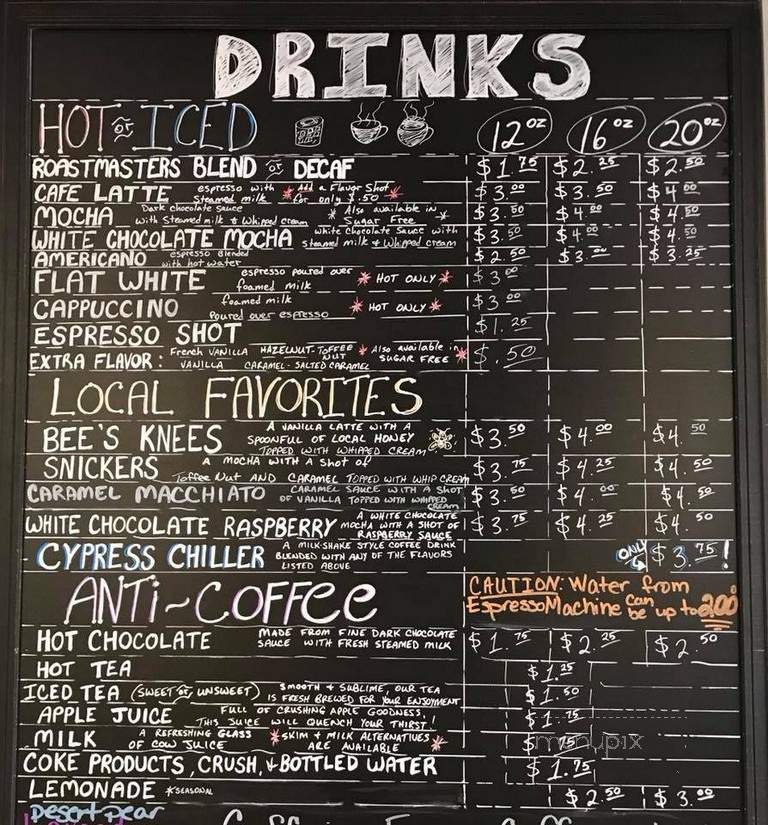 DRINKS
HOT or ICED 12oz 16oz 20oz
ROASTMASTERS BLEND or DECAF $1.75 $2.25 $2.50
CAFE LATTE espresso with steamed milk * Add a Flavor Shot for only $.50 * $3.00 $3.50 $4.00
MOCHA Dark chocolate sauce with steamed milk & whipped cream * Also available in Sugar Free * $3.50 $4.00 $4.50
WHITE CHOCOLATE MOCHA white chocolate sauce with steamed milk & whipped cream $3.50 $4.00 $4.50
AMERICANO espresso blended with hot water $2.50 $3.00 $3.25
FLAT WHITE espresso poured over foamed milk * HOT ONLY * $3.00
CAPPUCCINO foamed milk poured over espresso * HOT ONLY * $3.00
ESPRESSO SHOT $1.25
EXTRA FLAVOR: French VANILLA HAZELNUT-TOFFEE NUT VANILLA CARAMEL-SALTED CARAMEL * Also available in SUGAR FREE * $.50
LOCAL FAVORITES
BEE'S KNEES A VANILLA LATTE WITH A SPOONFUL OF LOCAL HONEY TOPPED WITH WHIPPED CREAM $3.50 $4.00 $4.50
SNICKERS A MOCHA WITH A SHOT OF Toffee Nut AND CARAMEL TOPPED WITH WHIP CREAM $3.75 $4.25 $4.50
CARAMEL MACCHIATO CARAMEL SAUCE WITH A SHOT OF VANILLA TOPPED WITH WHIPPED CREAM $3.50 $4.00 $4.50
WHITE CHOCOLATE RASPBERRY A WHITE CHOCOLATE MOCHA WITH A SHOT OF RASPBERRY SAUCE $3.75 $4.25 $4.50
CYPRESS CHILLER A MILK-SHAKE STYLE COFFEE DRINK BLENDED WITH ANY OF THE FLAVORS LISTED ABOVE ONLY $3.75!
ANTi~COFFEE CAUTION: Water from Espresso Machine can be up to 200°
HOT CHOCOLATE MADE FROM FINE DARK CHOCOLATE SAUCE WITH FRESH STEAMED MILK $1.75 $2.25 $2.50
HOT TEA $1.25
ICED TEA (SWEET or UNSWEET) SMOOTH & SUBLIME, OUR TEA IS FRESH BREWED FOR YOUR ENJOYMENT $1.50
APPLE JUICE FULL OF CRUSHING APPLE GOODNESS, THIS JUICE WILL QUENCH YOUR THIRST! $1.75
MILK A REFRESHING GLASS OF COW JUICE * SKIM & MILK ALTERNATIVES ARE AVAILABLE * $.75
menupix
COKE PRODUCTS, CRUSH, & BOTTLED WATER $1.75
LEMONADE *SEASONAL $2.50 $3.00
Desert pear